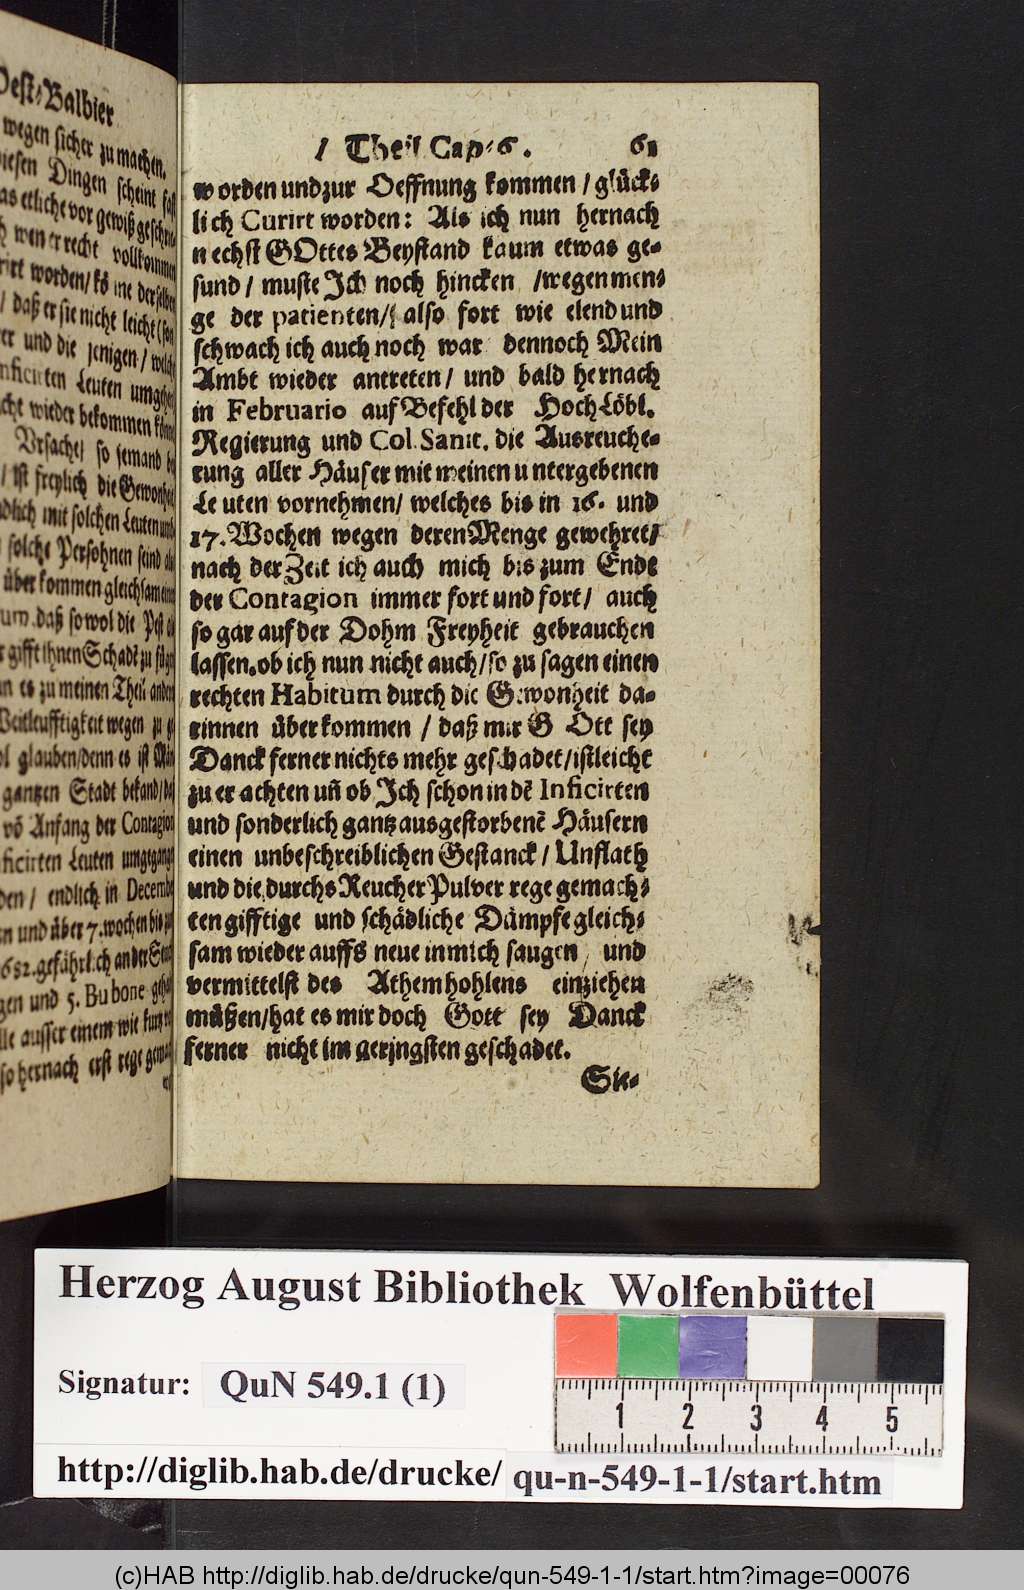 Pest-Balbier
wegen sicher zu machen.
diesen Dingen scheint fast
etliche vor gewiß geschrie-
recht vollkommen
worden/ köñe derselben
/ daß er sie nicht leicht (son
und die jenigen / welche
inficirten Leuten umgehen
nicht wieder bekommen könne
Ursache/ so jemand bey
/ ist freylich die Gewonheit
endlich mit solchen Leuten und
solche Persohnen seind also
überkommen gleichsam eine
daß sowol die Pest als
gifft ihnen Schadē zu fügen
es zu meinen Theil anders
Weitleufftigkeit wegen zu
glauben/denn es ist Mān
gantzen Stadt bekand/daß
vō Anfang der Contagion
inficirten Leuten umgegangen
/ endlich in Decembr
und über 7. wochen bis
1682. gefährlich an der Seuche
gen und 5. Bubone gehabt
alle ausser einem wie kurtz
so hernach erst rege gemacht
1 Theil Cap. 6. 61
worden und zur Oeffnung kommen / glück-
lich Curirt worden: Als ich nun hernach
nechst GOttes Beystand kaum etwas ge-
sund / muste Ich noch hincken /wegen men-
ge der patienten/ also fort wie elend und
schwach ich auch noch war dennoch Mein
Ambt wieder antreten / und bald hernach
in Februario auf Befehl der HochLöbl.
Regierung und Col. Sanit. die Ausreuche-
rung aller Häuser mit meinen untergebenen
Leuten vornehmen/ welches bis in 16. und
17. Wochen wegen deren Menge gewehret/
nach der Zeit ich auch mich bis zum Ende
der Contagion immer fort und fort / auch
so gar auf der Dohm Freyheit gebrauchen
lassen. ob ich nun nicht auch/so zu sagen einen
rechten Habitum durch die Gewonheit da-
rinnen überkommen / daß mir GOtt sey
Danck ferner nichts mehr geschadet/ist leicht
zu erachten uñ ob Ich schon in dē Inficirten
und sonderlich gantz ausgestorbenē Häusern
einen unbeschreiblichen Gestanck / Unflath
und die durchs Reucher Pulver rege gemach-
ten gifftige und schädliche Dämpfe gleich-
sam wieder auffs neue in mich saugen / und
vermittelst des Athemhohlens einziehen
müßen/hat es mir doch Gott sey Danck
ferner nicht im geringsten geschadet.
Sie-
Herzog August Bibliothek Wolfenbüttel
Signatur: QuN 549.1 (1)
1 2 3 4 5
http://diglib.hab.de/drucke/ qu-n-549-1-1/start.htm
(c)HAB http://diglib.hab.de/drucke/qun-549-1-1/start.htm?image=00076